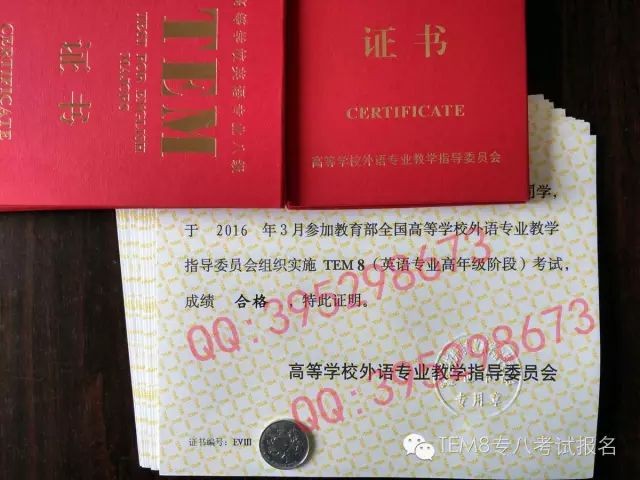 高等学校英语专业八级
TEM
TEST FOR ENGLISH
MAJORS
证书
CERTIFICATE
证书
CERTIFICATE
高等学校外语专业教学指导委员会
同学,
于 2016 年3月参加教育部全国高等学校外语专业教学
指导委员会组织实施 TEM 8（英语专业高年级阶段）考试,
成绩 合格 ,特此证明。
QQ:395298673
高等学校外语专业教学指导委员会
QQ:395298673
专用章
证书编号: EVIII
TEM8专八考试报名